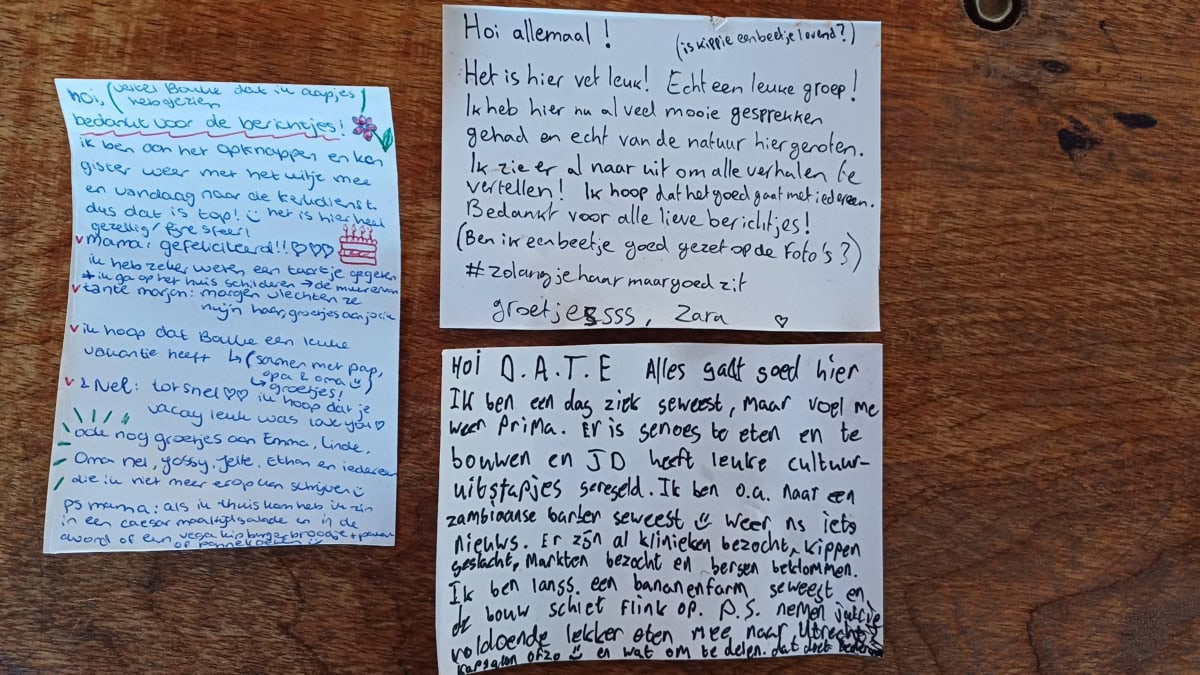 Hoi, (vertel Bouke dat ik aapjes
heb gezien)
bedankt voor de berichtjes!
ik ben aan het opknappen en kon
gister weer met het uitje mee
en vandaag naar de kerkdienst
dus dat is top! het is hier heel
gezellig/fijne sfeer!
mama: gefeliciteerd!!
ik heb zeker weten een taartje gegeten
+ ik ga op het huis schilderen → de muren
tante marjon: morgen vlechten ze
mijn haar, groetjes aan
ik hoop dat Bouke een leuke
vakantie heeft ↳ (samen met pap,
opa & oma)
↳ groetjes!
& Nel: tot snel ♡♡ ik hoop dat je
vacay leuk was love you ♡
ook nog groetjes aan Emma, Linde,
Oma nel, Jelle, Ethan en iedereen
die ik niet meer erop kan schrijven
ps mama: als ik thuis kom heb ik zin
in een caesar maaltijdsalade en in de
avond of een vega kipburger broodje +
of pannekoeken
Hoi allemaal!
(is kippie een beetje lovend?)
Het is hier vet leuk! Echt een leuke groep!
Ik heb hier nu al veel mooie gesprekken
gehad en echt van de natuur hier genoten.
Ik zie er al naar uit om alle verhalen te
vertellen! Ik hoop dat het goed gaat met iedereen.
Bedankt voor alle lieve berichtjes!
(Ben ik een beetje goed gezet op de foto's?)
#zolangjehaarmaargoedzit
groetjesssss, Zara ♡
Hoi D.A.T.E Alles gaat goed hier
Ik ben een dag ziek geweest, maar voel me
weer prima. Er is genoeg te eten en te
bouwen en JD heeft leuke cultuur-
uitstapjes geregeld. Ik ben o.a. naar een
zambiaanse barber geweest weer ns iets
nieuws. Er zijn al klinieken bezocht, kippen
geslacht, markten bezocht en bergen beklommen.
Ik ben langs een bananenfarm geweest en
de bouw schiet flink op. P.S. nemen jullie
voldoende lekker eten mee naar Utrecht
kapsalon ofzo en wat om te delen. dat doet